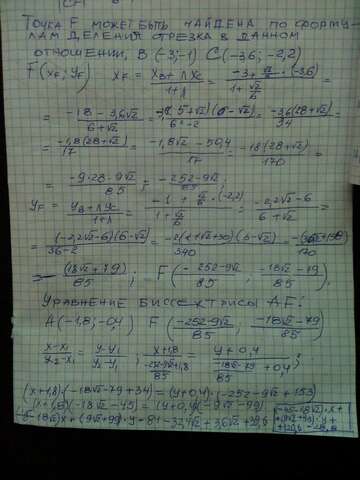 Точка F может быть найдена по форму-
лам деления отрезка в данном
отношении, B (-3;-1) C(-3,6; -2,2)
F(x_F; y_F) x_F = (x_B + λx_C)/(1+λ) = (-3 + √2/6 · (-3,6))/(1 + √2/6) =
= (-18 - 3,6√2)/(6+√2) =
= (-1,8(28+√2))/17 = (-1,8√2 - 50,4)/17 = (-18(28+√2))/170 =
= (-9·28-9√2)/85 = (-252-9√2)/85 ;
y_F = (y_B + λy_C)/(1+λ) = (-1 + √2/6 · (-2,2))/(1 + √2/6) = (-2,2√2 - 6)/(6+√2) =
= ((-2,2√2-6)(6-√2))/(36-2) =
= -(18√2+79)/85 ; F((-252-9√2)/85 ; (-18√2-79)/85).
Уравнение биссектрисы AF:
A(-1,8; -0,4) F((-252-9√2)/85 ; (-18√2-79)/85)
(x-x₁)/(x₂-x₁) = (y-y₁)/(y₂-y₁) ; (x+1,8)/((-252-9√2)/85+1,8) = (y+0,4)/((-18√2-79)/85+0,4) ;
(x+1,8)·(-18√2-79+34) = (y+0,4)·(-252-9√2+153)
(x+1,8)(-18√2-45) = (y+0,4)(-9√2-99)